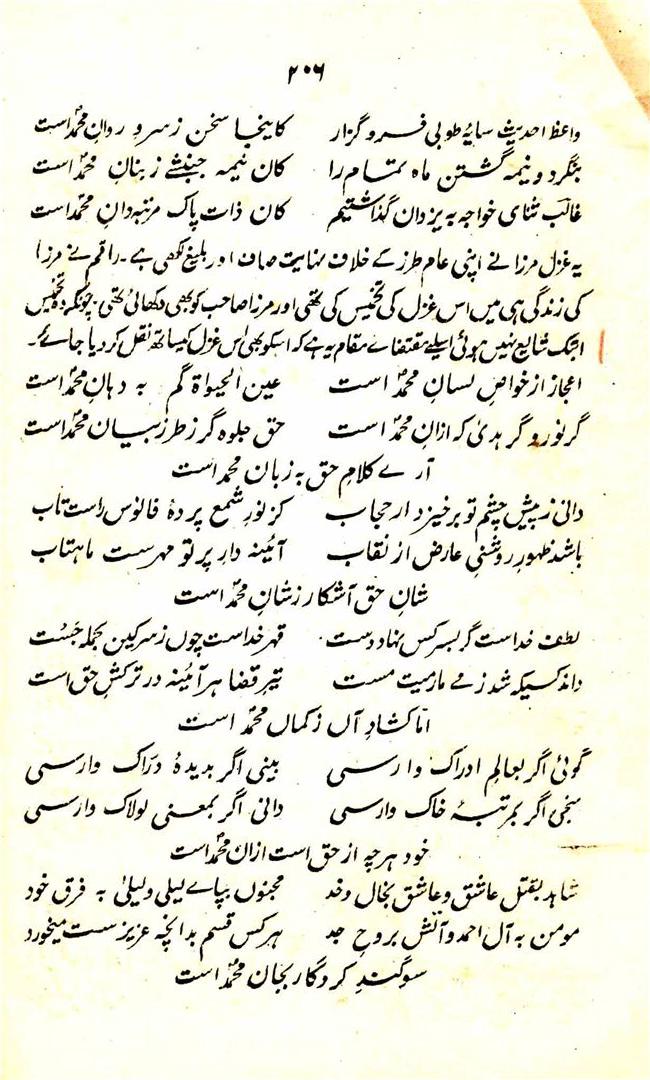 ۲۰۶
واعظ احدیث سایۂ طوبیٰ فرو گزار کاینجا سخن ز سروِ روانِ محمدؐ است
بنگر دو نیمہ گشتن ماہِ تمام را کان نیمہ جنبشے ز بنانِ محمدؐ است
غالبؔ ثنای خواجہ بہ یزدان گذاشتیم کان ذات پاک مرتبہ دانِ محمدؐ است
یہ غزل مرزا نے اپنی عام طرز کے خلاف نہایت صاف اور بلیغ لکھی ہے۔ راقم نے مرزا
کی زندگی ہی میں اس غزل کی تخمیس کی تھی اور مرزا صاحب کو بھی دکھائی تھی۔ چونکہ وہ تخمیس
ابتک شایع نہیں ہوئی اسلیے مقتضاے مقام یہ ہے کہ اسکو بھی اس غزل کیساتھ نقل کر دیا جائے۔
اعجاز از خواصِ لسانِ محمدؐ است عین الحیوٰۃ گم بہ دہانِ محمدؐ است
گر نور و گر ہدیٰ کہ ازانِ محمدؐ است حق جلوہ گر ز طرز بیانِ محمدؐ است
آرے کلامِ حق بہ زبان محمدؐ است
دانی ز پیش چشم تو برخیزد ار حجاب کز نورِ شمع پردۂ فانوس راست تاب
باشد ظہورِ روشنیِ عارض از نقاب آئینہ دارِ پرتوِ مہرست ماہتاب
شانِ حق آشکار ز شانِ محمدؐ است
لطف خداست گر بسرِ کس نہاد دست قہر خداست چوں ز سرِ کین بحملہ جَست
داند کسیکہ شد ز مے مارمیت مست تیرِ قضا ہر آئینہ در ترکشِ حق است
امّا کشادِ آں ز کمانِ محمدؐ است
گوئی اگر بعالمِ ادراک وارسی بینی اگر بدیدۂ درّاک وارسی
سنجی اگر بمرتبۂ خاک وارسی دانی اگر بمعنیِ لولاک وارسی
خود ہر چہ از حق است ازانِ محمدؐ است
شاہد بقتلِ عاشق و عاشق بخال و خد مجنوں بپاے لیلیٰ و لیلیٰ بہ فرق خود
مومن بہ آلِ احمد و آتش بروحِ جد ہر کس قسم بدانچہ عزیزست میخورد
سوگندِ کردگار بجان محمدؐ است